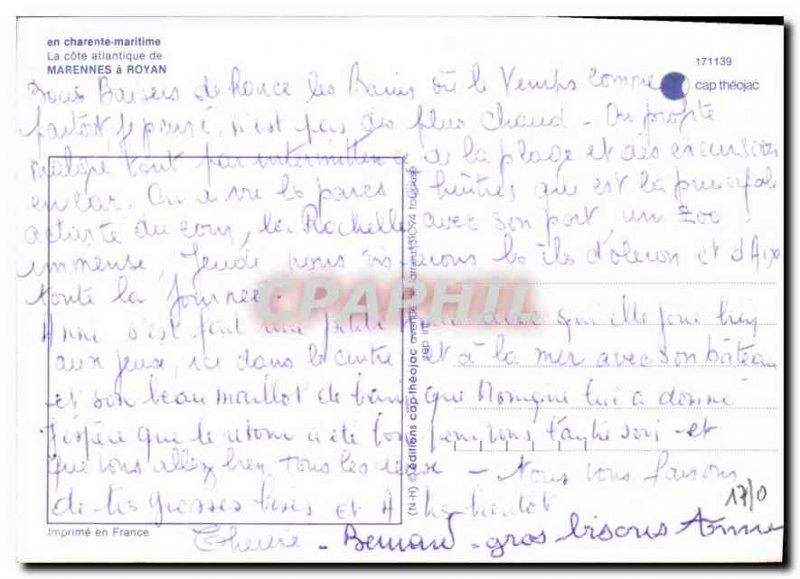 en charente-maritime
La côte atlantique de
MARENNES à ROYAN
171139
cap théojac
Bons Baisers de Ronce les Bains où le Temps comme
partout, je pense, n'est pas des plus chaud - On profite
malgré tout par intermittence de la plage et des excursion
en car. On a vu les parcs à huîtres qui est la principale
activité du coin, la Rochelle avec son port, un zoo
immense, Jeudi nous visiterons les îles d'oleron et d'Aix
toute la journée.
Anne s'est fait une petite amie avec qui elle joue bien
aux jeux, ici dans le centre et à la mer avec son bâteau
et son beau maillot de bain que Monique lui a donné
J'espère que le retour a été bon pour vous l'autre soir et
que vous allez bien tous les deux - Nous vous faisons
de très grosses bises et A bientôt
Thérèse - Bernard - gros bisous Anne
17/0
CPAPHIL
(N-H) © éditions cap-théojac avenue 31094 toulouse
rep int
Imprimé en France